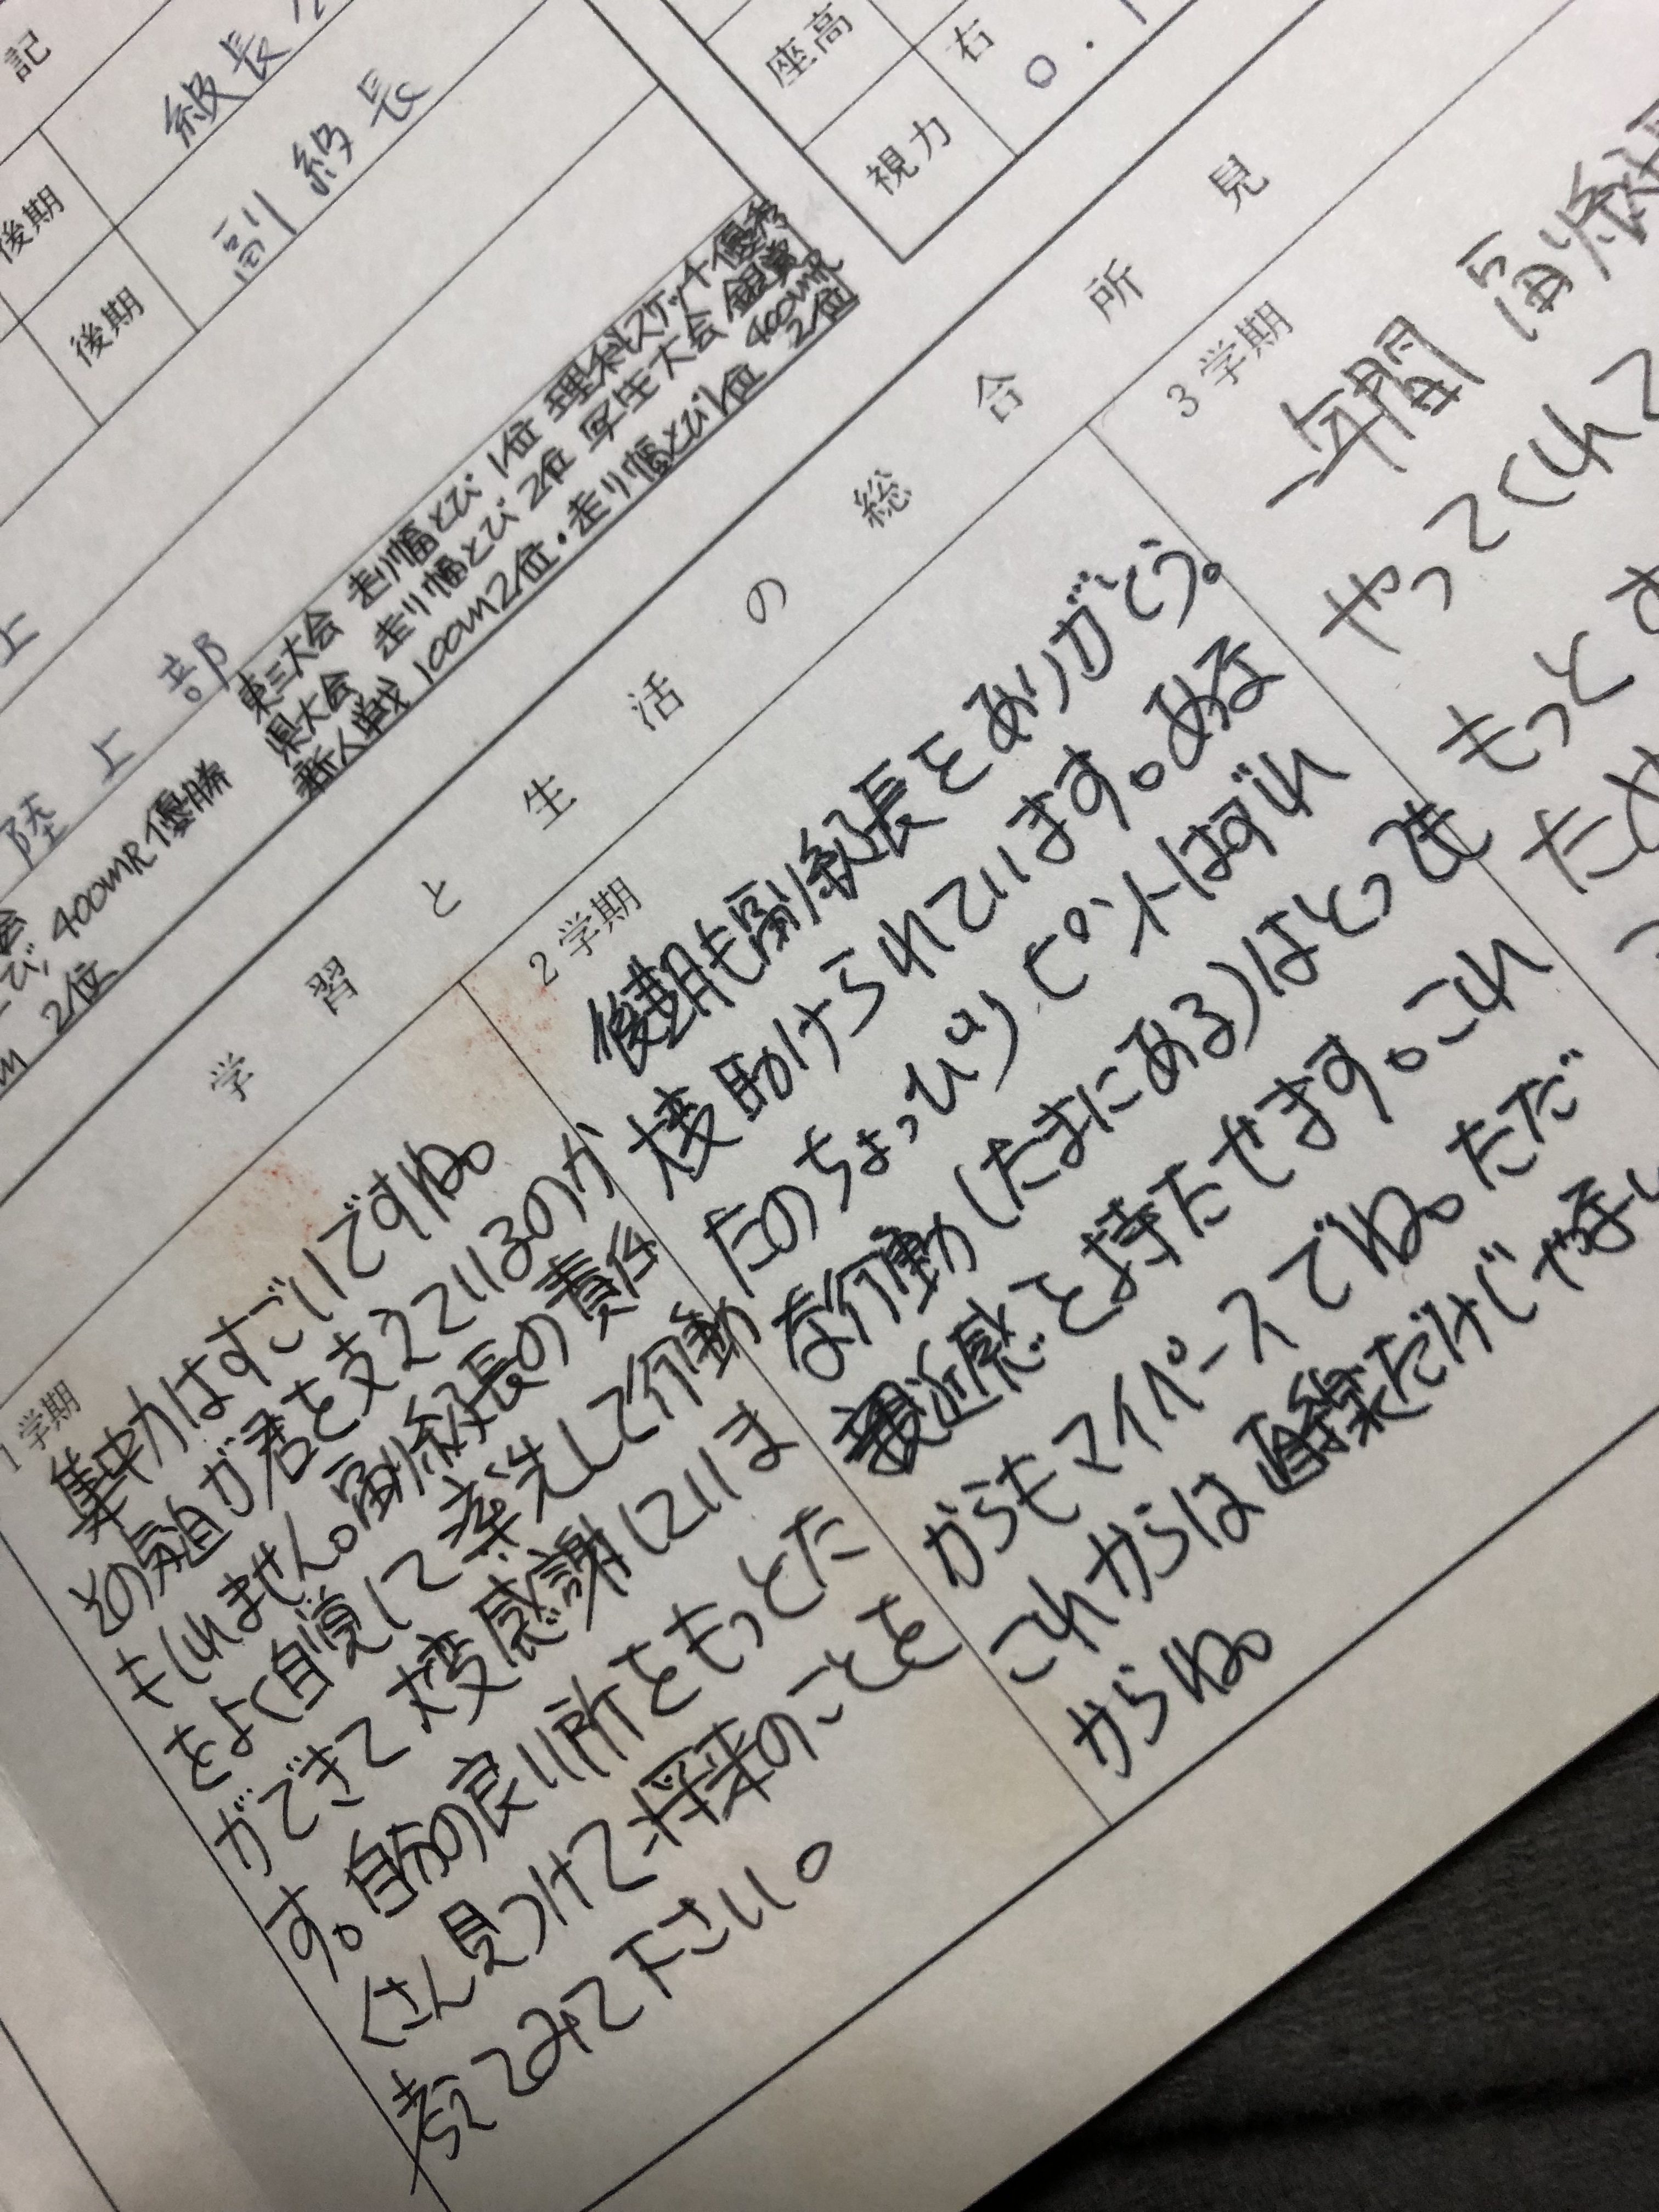 記
級長
後期
後期
副級長
座高
視力
右
0.1
上
陸上部
400mR優勝
2位
東三大会 走り幅とび 1位 理科スケッチ優秀
県大会 走り幅とび 2位 写生大会 銀賞
新人戦 100m2位・走り幅とび1位 400mR 2位
学習と生活の総合所見
1学期
集中力はすごいですね。
その気迫が君を支えているのか
もしれません。副級長の責任
をよく自覚して率先して行動
ができて大変感謝していま
す。自分の良い所をもっとた
くさん見つけて将来のことを
考えてみて下さい。
2学期
後期も副級長をありがとう。
大変助けられています。あな
たのちょっぴりピントはずれ
な行動(たまにある)はとっても
親近感を持たせます。これ
からもマイペースでね。ただ
これからは直線だけじゃない
からね。
3学期
一年間 副級
やってくれて
もっと